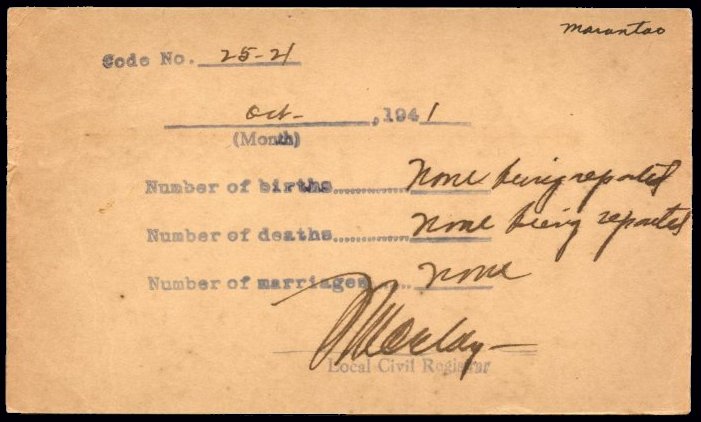 Marantao
Code No. 25-21
Oct- , 1941
(Month)
Number of births............ None being reported
Number of deaths............ None being reported
Number of marriages...... none
Local Civil Registrar